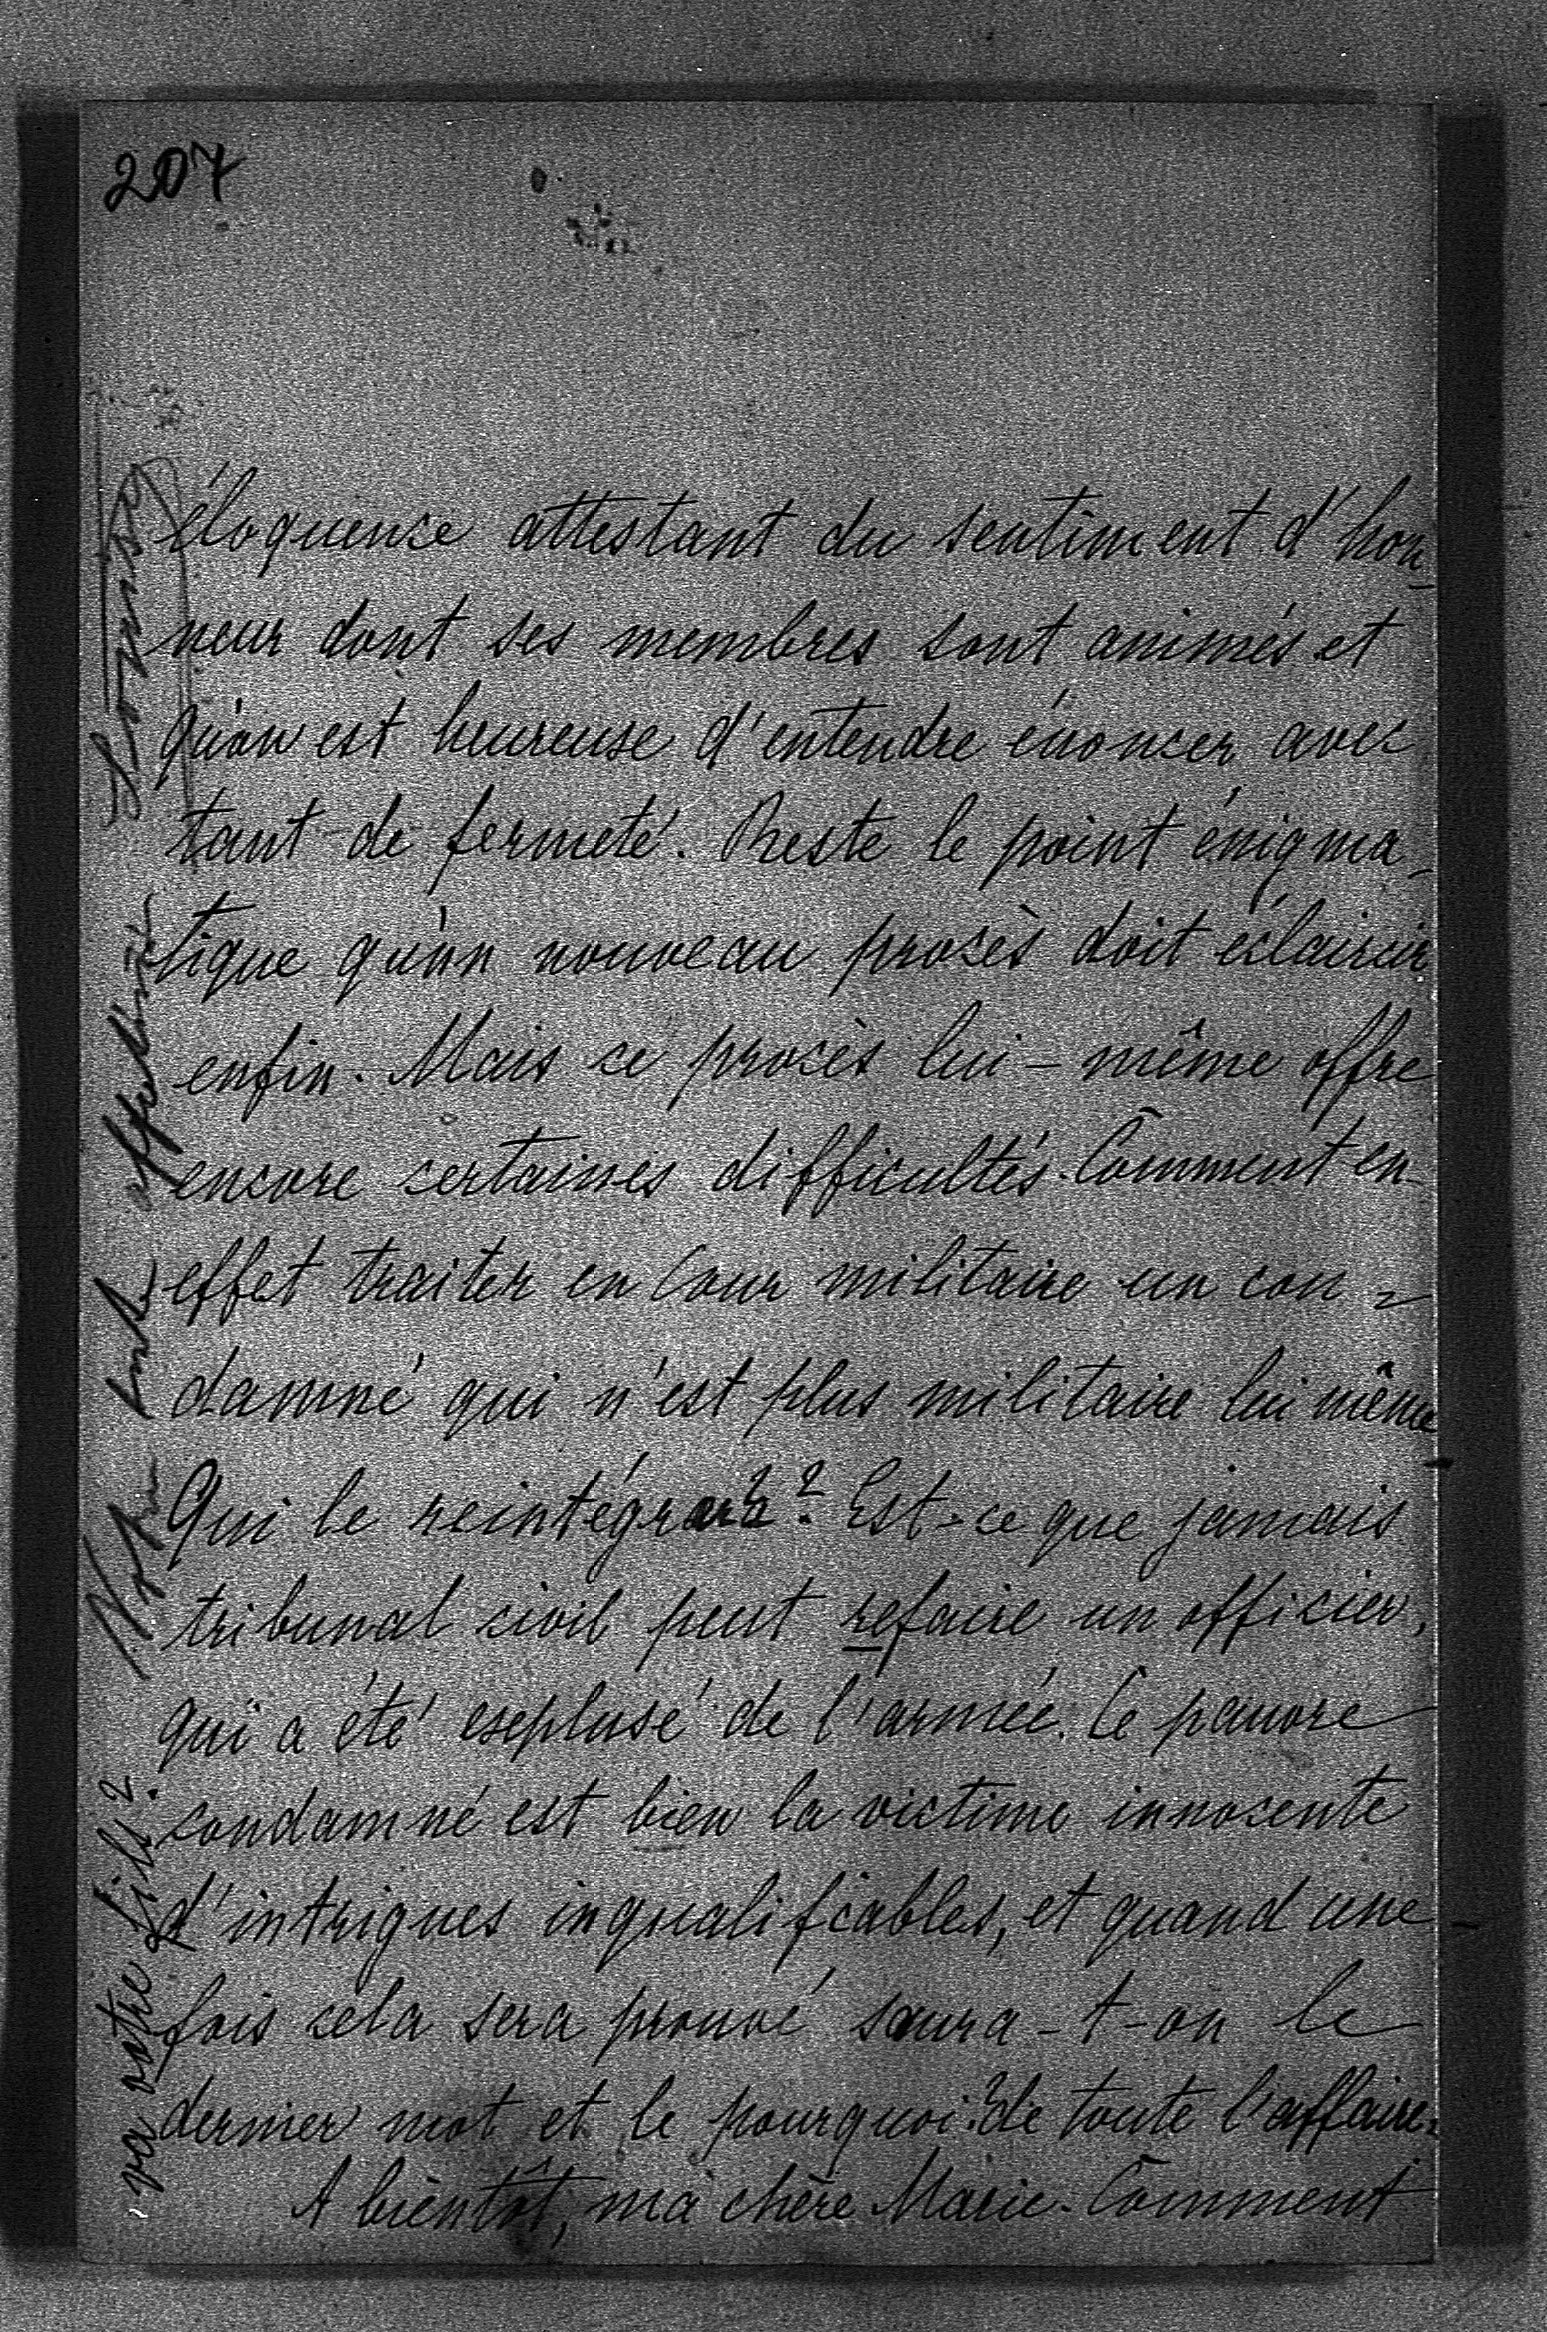 207
éloquence attestant du sentiment d'hon-
neur dont ses membres sont animés et
qu'on est heureuse d'entendre énoncer avec
tant de fermeté. Reste le point énigma-
tique qu'un nouveau procès doit éclaircir
enfin. Mais ce procès lui-même offre
encore certaines difficultés. Comment en
effet traiter en Cour militaire un con-
damné qui n'est plus militaire lui même
Qui le reintégrera? Est-ce que jamais
tribunal civil peut refaire un officier,
qui a été explusé de l'armée. Ce pauvre
condamné est bien la victime innocente
d'intrigues inqualifiables, et quand une
fois cela sera prouvé saura-t-on le
dernier mot et le pourquoi? de toute l'affaire.
A bientôt, ma chère Marie. Comment
va votre fils? Votre tante affectionnée